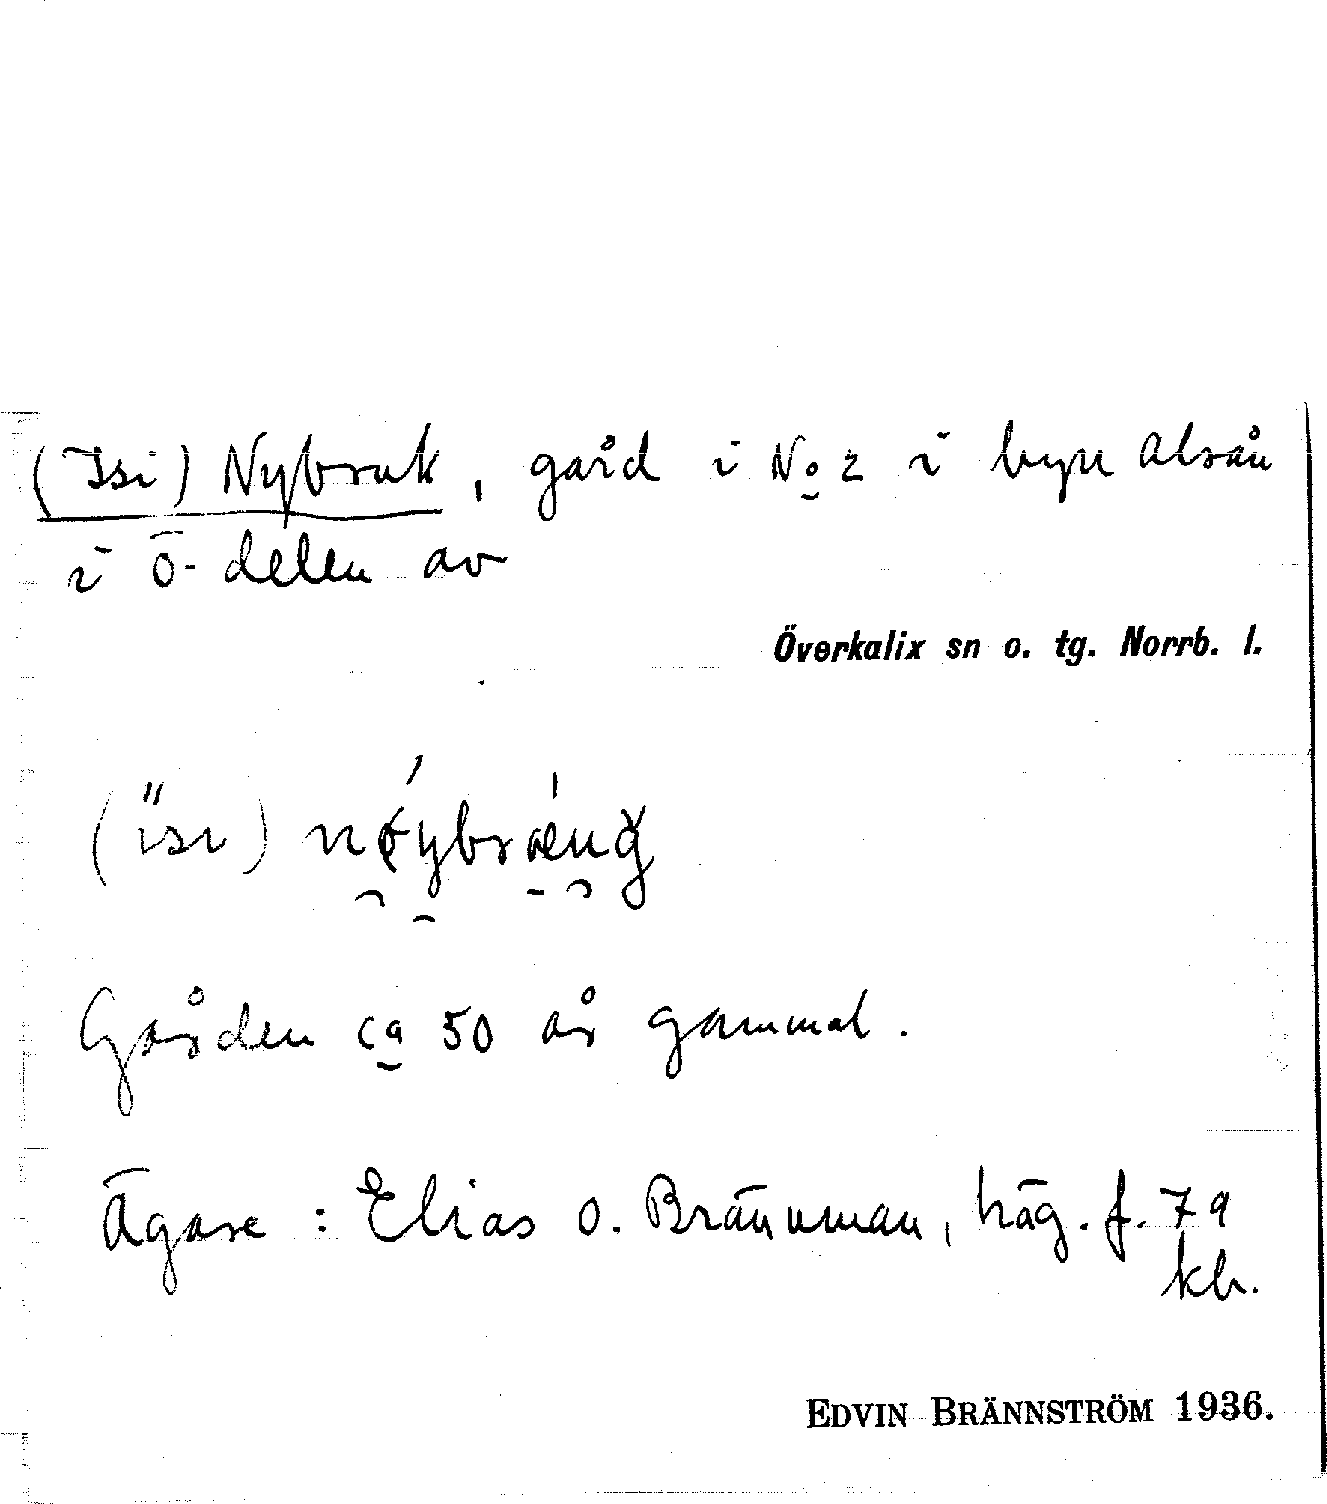 (Isi) Nybruk, gård i No 2 i byn Alsån
i ö-delen av
Överkalix sn o. tg. Norrb. l.
Gården ca 50 år gammal.
Ägare: Elias o. Brännman, häg. f. 79
kh.
EDVIN BRÄNNSTRÖM 1936.